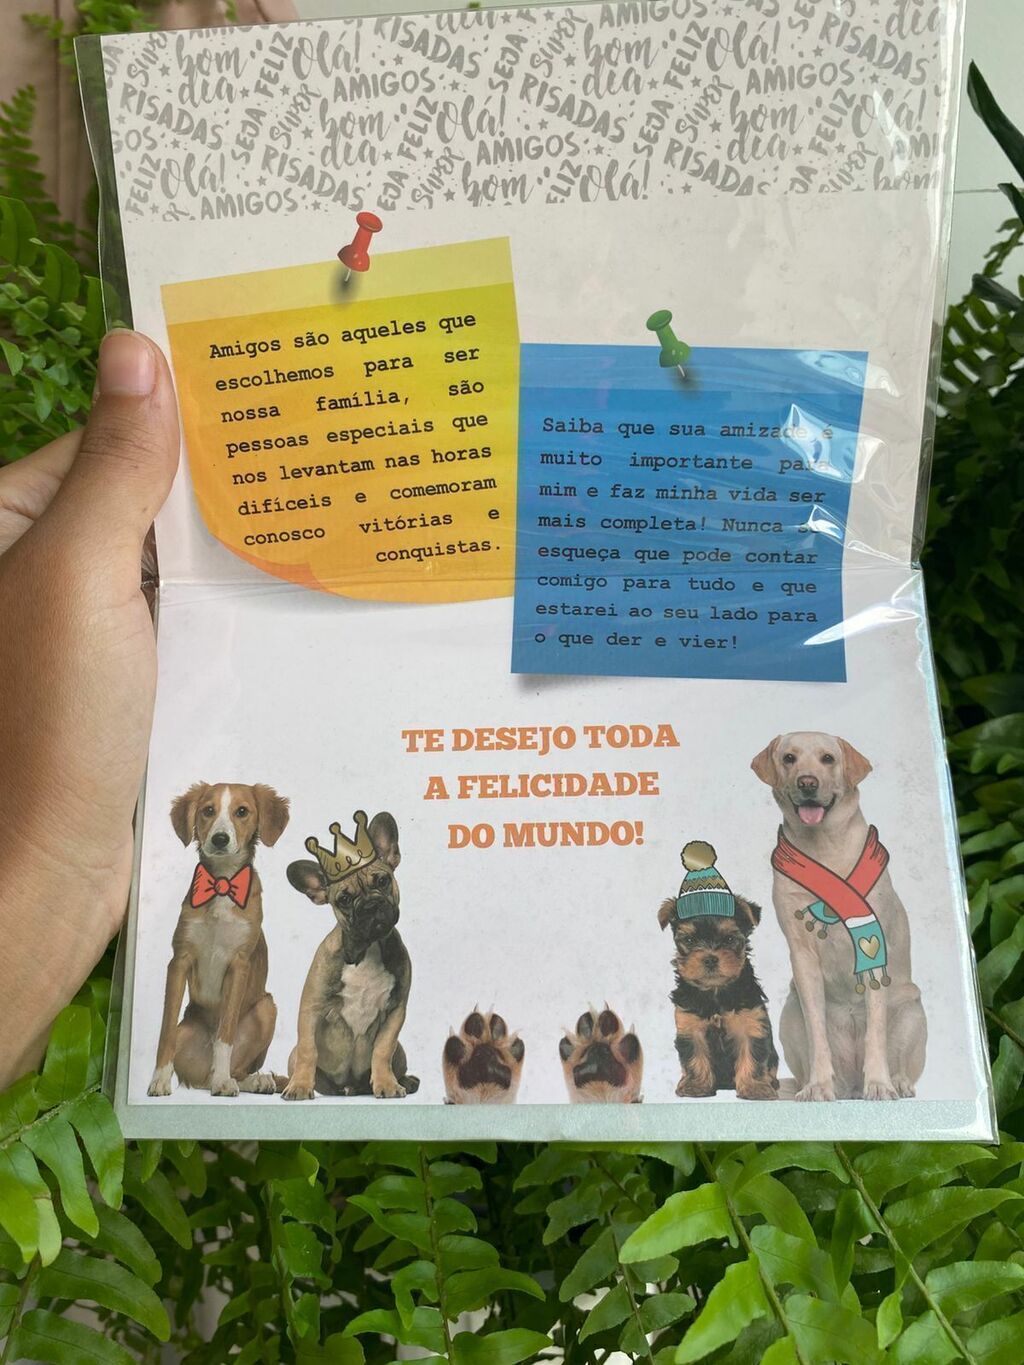 AMIGOS
RISADAS bom dia SUPER SEJA FELIZ Olá! AMIGOS RISADAS bom dia SUPER SEJA FELIZ Olá! AMIGOS RISADAS
AMIGOS bom dia SEJA FELIZ Olá! RISADAS SUPER bom dia AMIGOS SEJA FELIZ Olá! RISADAS
FELIZ Olá! AMIGOS SEJA RISADAS SUPER bom AMIGOS Olá! RISADAS bom
Amigos são aqueles que
escolhemos para ser
nossa família, são
pessoas especiais que
nos levantam nas horas
difíceis e comemoram
conosco vitórias e
conquistas.
Saiba que sua amizade é
muito importante para
mim e faz minha vida ser
mais completa! Nunca se
esqueça que pode contar
comigo para tudo e que
estarei ao seu lado para
o que der e vier!
TE DESEJO TODA
A FELICIDADE
DO MUNDO!